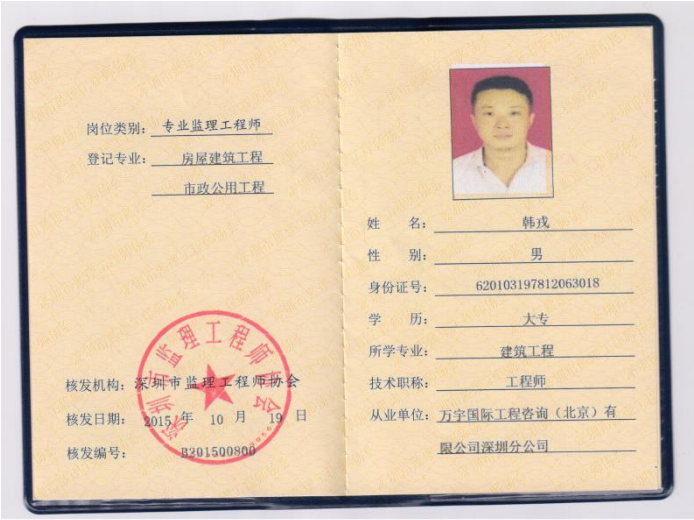 岗位类别：专业监理工程师
登记专业：房屋建筑工程
市政公用工程
深圳市监理工程师协会
核发机构：深圳市监理工程师协会
核发日期：2015 年 10 月 19 日
核发编号：B201500800
姓 名：韩戎
性 别：男
身份证号：620103197812063018
学 历：大专
所学专业：建筑工程
技术职称：工程师
从业单位：万宇国际工程咨询（北京）有
限公司深圳分公司